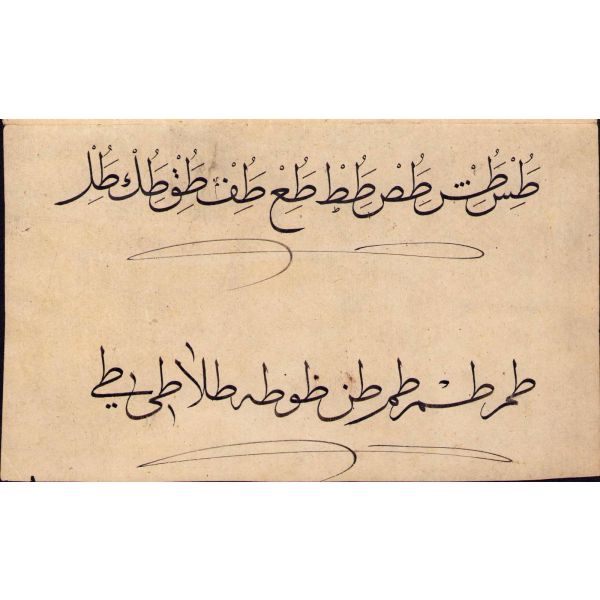 طس طس طص طط طع طف طق طك طل
طم طم طم طن طو طه طلا طى طى